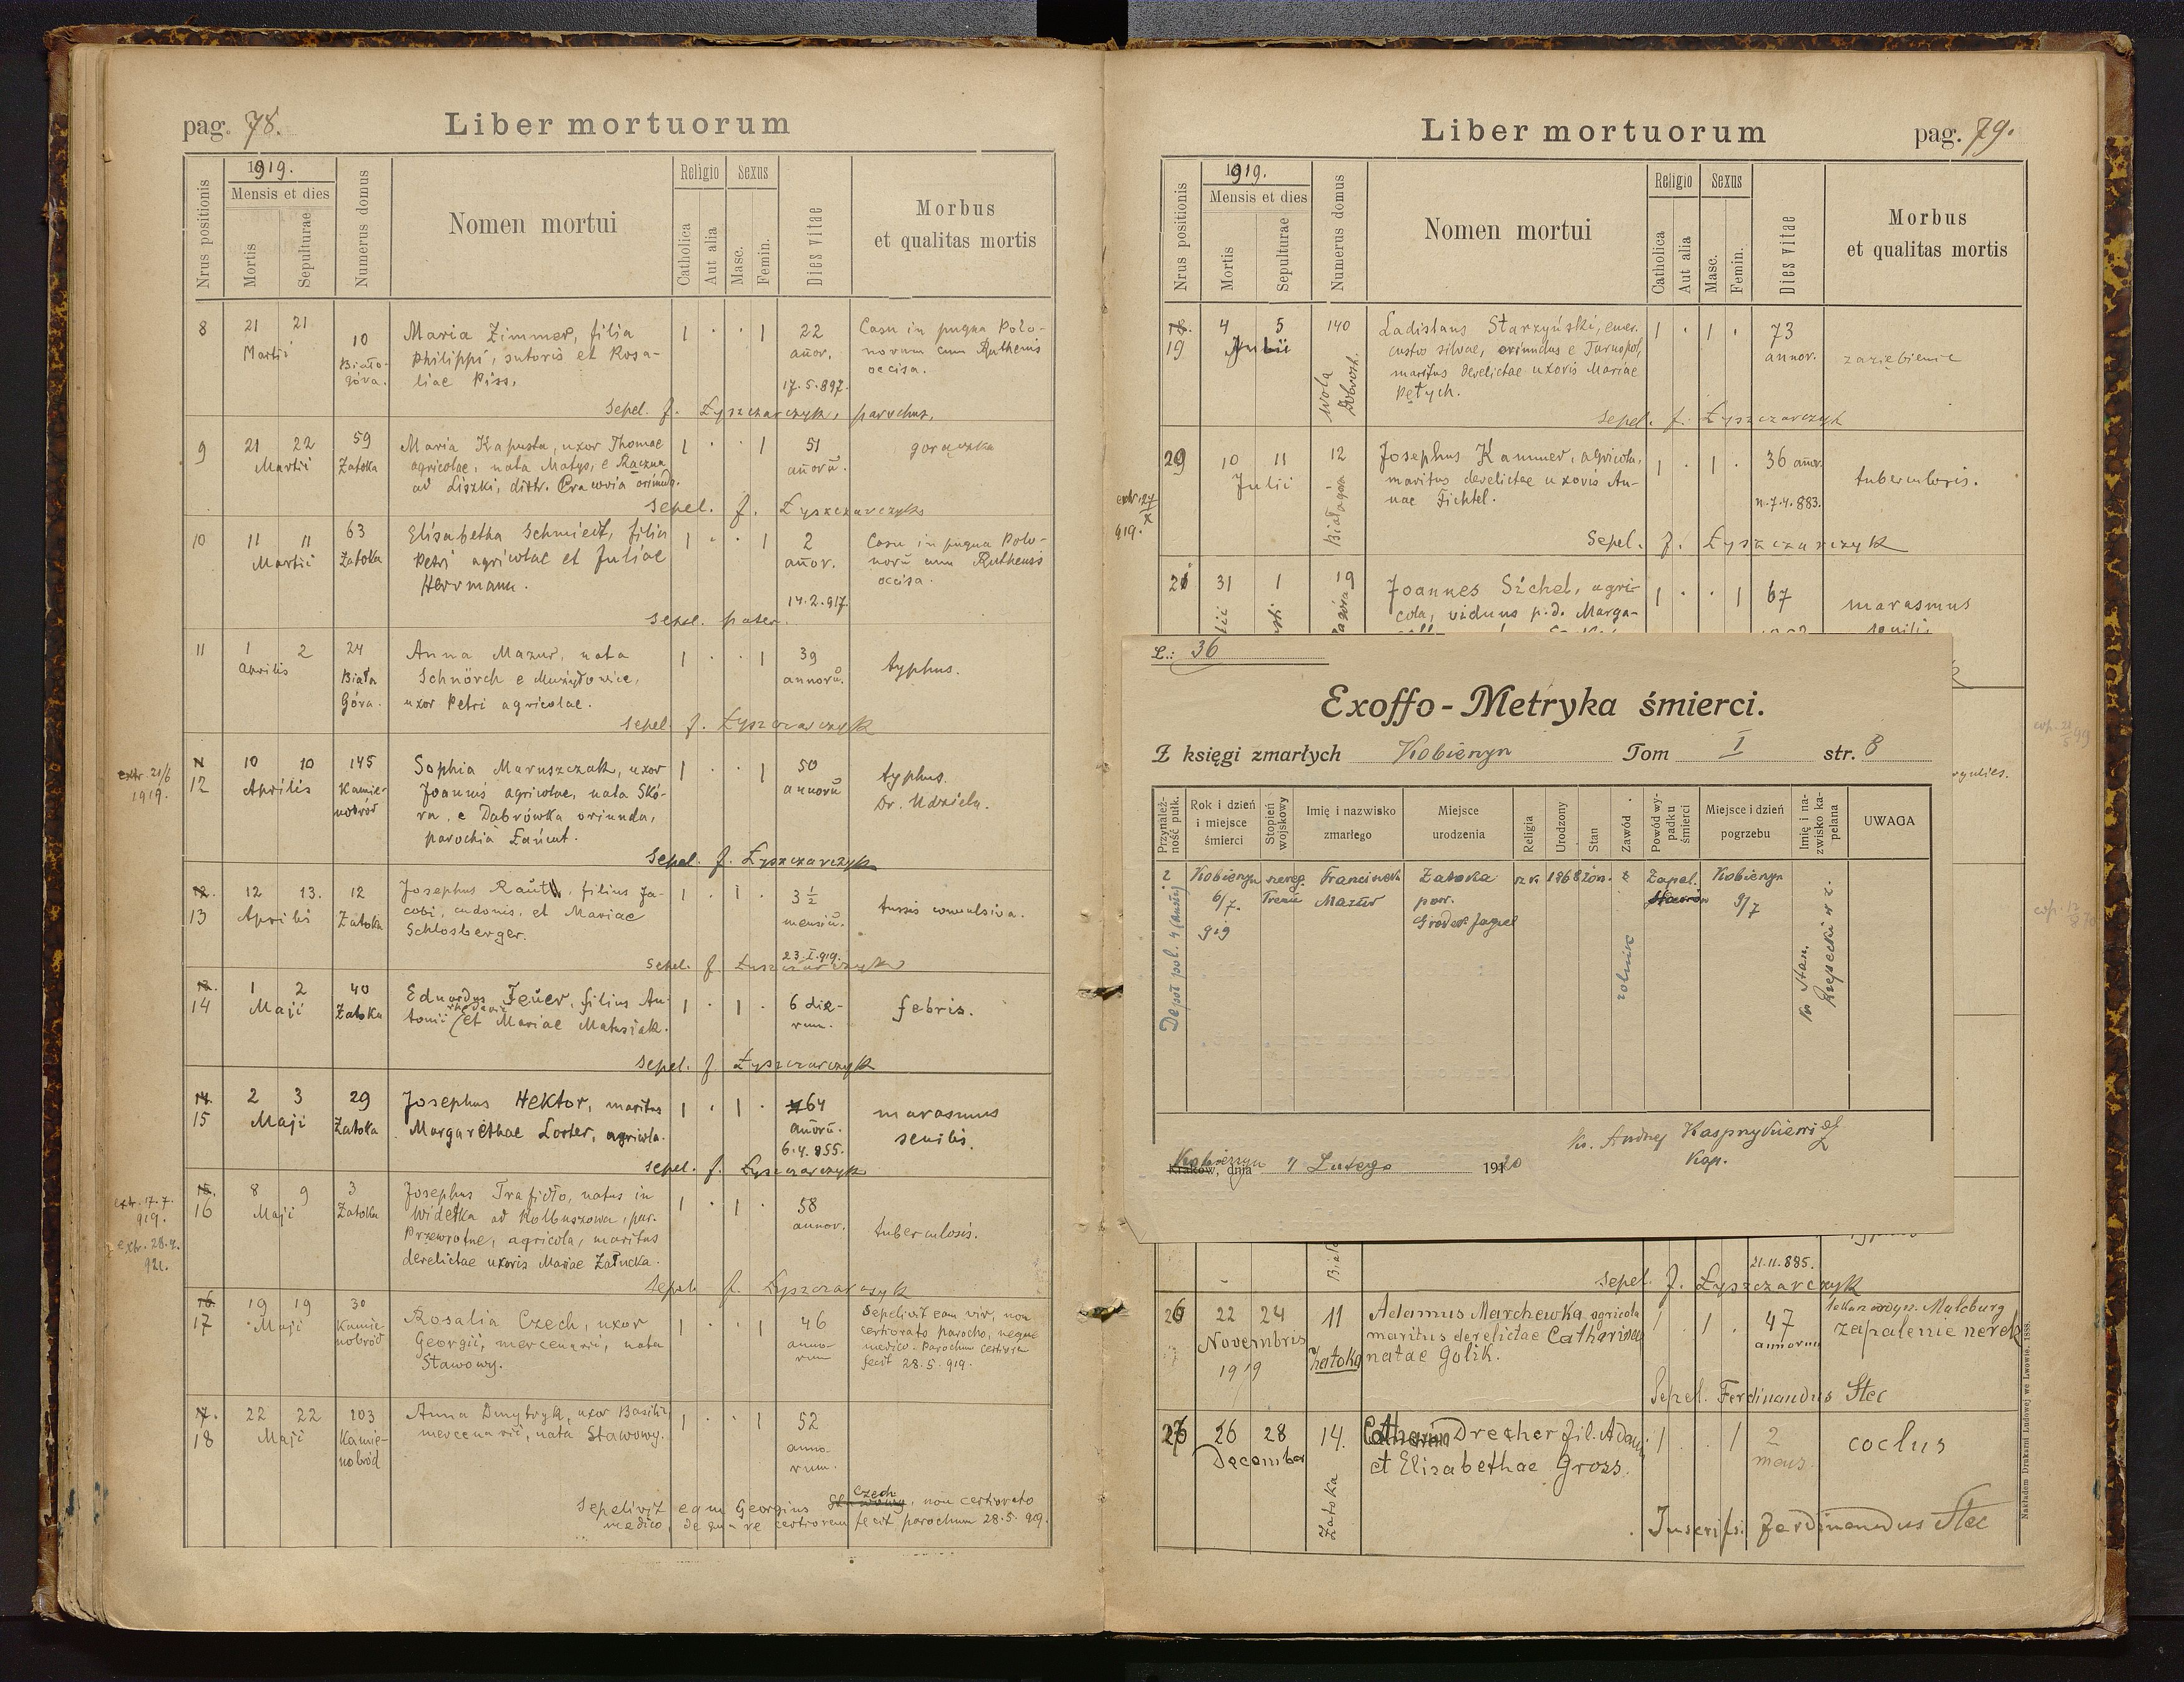 pag. 78.
Liber mortuorum
1919.
Mensis et dies
Nrus positionis
Mortis
Sepulturae
Numerus domus
Nomen mortui
Religio
Catholica
Aut alia
Sexus
Masc.
Femin.
Dies vitae
Morbus
et qualitas mortis
8 21 21 10 Maria Zimmer, filia 1 . . 1 22 Casu in pugna Polo-
Martii Biało- Philippi, sutoris et Rosa- añor. norum cum Ruthenis
góra. liae Piss. 17.5.897. occisa.
Sepel. J. Łyszczarczyk, parochus.
9 21 22 59 Maria Kapusta, uxor Thomae 1 . . 1 51 gorączka
Martii Zatoka agricolae, nata Matys, e Raczna añorū.
ad Liszki, distr. Cracovia oriunda.
Sepel. J. Łyszczarczyk
10 11 11 63 Elisabetha Schmiedt, filia 1 . . 1 2 Casu in pugna Polo-
Martii Zatoka Petri agricolae et Juliae añor. norū cum Ruthenis
Herrmann. 14.2.917. occisa.
Sepel. pater.
11 1 2 24 Anna Mazur, nata 1 . . 1 39 typhus.
Aprilis Biała Schnörch e Mużyłowice, annorū.
Góra. uxor Petri agricolae.
Sepel. J. Łyszczarczyk
extr. 21/6
1919.
11 10 10 145 Sophia Maruszczak, uxor 1 . . 1 50 typhus.
12 Aprilis Kamie- Joannis agricolae, nata Skó- annorū Dr. Udziela.
nobród ra, e Dabrówka oriunda,
parochia Łańcut.
Sepel. J. Łyszczarczyk
12. 12 13. 12 Josephus Raüth, filius Ja- 1 . 1 . 3 ½ tussis convulsiva.
13 Aprilis Zatoka cobi, et Mariae mensiū.
Schlosberger. 23.I.919.
Sepel. J. Łyszczarczyk
13. 1 2 40 Eduardus Feuer, filius An- 1 . 1 . 6 die- febris.
14 Maji Zatoka tonii et Mariae Matusiak. rum.
Sepel. J. Łyszczarczyk
14. 2 3 29 Josephus Hektor, maritus 1 . 1 . 64 marasmus
15 Maji Zatoka Margarethae Lorter, agricola. añorū. senilis.
6.4.855.
Sepel. J. Łyszczarczyk
extr. 17.7.
919.
extr. 28.4.
921.
15. 8 9 3 Josephus Trafidło, natus in 1 . 1 . 58 tuberculosis.
16 Maji Zatoka Widełka ad Kolbuszowa, par. annor.
Przewrotne, agricola, maritus
derelictae uxoris Mariae Załucka.
Sepel. J. Łyszczarczyk
16 19 19 30 Rosalia Czech, uxor 1 . . 1 46 Sepelivit eam vir, non
17 Maji Kamie- Georgii, mercenarii, nata anno- certiorato parocho, neque
nobród Stawowy. rum medico. Parochum certiorem
fecit 28.5.919.
17. 22 22 103 Anna Dmytryk, uxor Basilii, 1 . . 1 52
18 Maji Kamie- mercenarii, nata Stawowy. anno-
nobród rum.
Sepelivit eam Georgius Stawowy Czech, non certiorato
medico, de qua re certiorem fecit parochum 28.5.919.
Liber mortuorum
pag. 79.
1919.
Mensis et dies
Nrus positionis
Mortis
Sepulturae
Numerus domus
Nomen mortui
Religio
Catholica
Aut alia
Sexus
Masc.
Femin.
Dies vitae
Morbus
et qualitas mortis
18. 4 5 140 Ladislaus Starzyński, emer. 1 . 1 . 73 zaziębienie
19 Julii Wola Dobrost. custos silvae, oriundus e Tarnopol, annor.
maritus derelictae uxoris Mariae
Pełych.
Sepel. J. Łyszczarczyk
extr. 27/X
919.
20 10 11 12 Josephus Kammer, agricola, 1 . 1 . 36 añor. tuberculosis.
Julii Białagóra maritus derelictae uxoris An-
nae Fichtel. n.7.4.883.
Sepel. J. Łyszczarczyk
21 31 1 19 Joannes Sichel, agri- 1 . . 1 67 marasmus
cola, viduus p.d. Marga- senilis
L.: 36
Exoffo-Metryka śmierci.
Z księgi zmarłych Kobierzyn Tom I str. 8
Przynależ-
ność pułk.
Rok i dzień
i miejsce
śmierci
Stopień
wojskowy
Imię i nazwisko
zmarłego
Miejsce
urodzenia
Religia
Urodzony
Stan
Zawód
Powód wy-
padku
śmierci
Miejsce i dzień
pogrzebu
Imię i na-
zwisko ka-
pelana
UWAGA
Kobierzyn szereg. Franciszek Zatoka rz.k. 1868 żon. Zapal. Kobierzyn
6/7. Trenu Mazur pow. 9/7
919 Gródek Jagiel
rolnik
Ks. Stan.
Ks. Andrzej Kasprzykiewicz
Kap.
Kraków, dnia Kobierzyn 4 Lutego 1920
21.11.885.
Sepel. J. Łyszczarczyk
26 22 24 11 Adamus Marchewka agricola 1 . 1 . 47 Malcburg
Novembris Zatoka maritus derelictae Catharinae annorum zapalenie nerek
1919 natae Golik.
Sepel. Ferdinandus Stec
26 28 14. Drecher fil. Adami 1 . . 1 2 coclus
December Zatoka et Elisabethae Gross. mens.
Inscripsi Ferdinandus Stec
Nakładem Drukarni Ludowej we Lwowie. 1888.